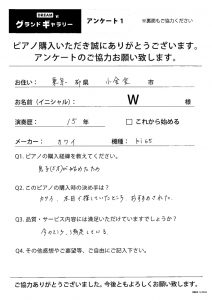 グランドギャラリー
アンケート1
※裏面もご協力ください
ピアノ購入いただき誠にありがとうございます。
アンケートのご協力お願い致します。
お住い： 東京 都県 小金井 市
お名前(イニシャル) W 様
演奏歴： 15 年 □これから始める
メーカー： カワイ 機種：
Q1. ピアノの購入経緯を教えてください。
Q2. このピアノの購入時の決め手は？
カワイ、木目で探していたところ、おすすめされた。
Q3. 品質・サービス内容には満足いただけていますでしょうか？
今のところ、満足している。
Q4. その他感想やご要望等、ご自由にご記入下さい。
ご協力ありがとうございました。今後ともよろしくお願い致します。